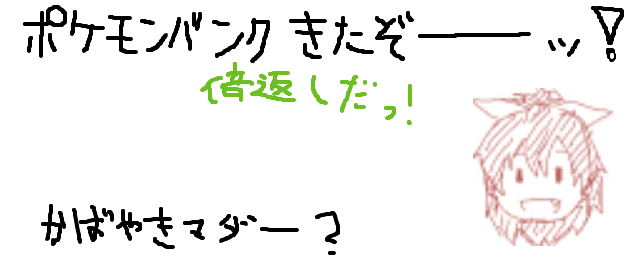 ポケモンバンクきたぞーーーッ!
倍返しだっ!
かばやきマダー?